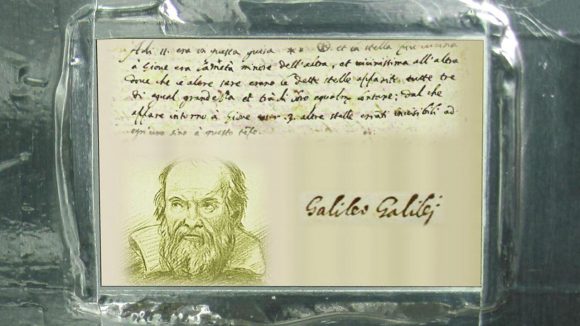 Adi 11. era in questa guisa ** et la stella più vicina
à Giove era la metà minore dell'altra, et vicinissima all'altra
dove che le altre sere erano le dette stelle apparite tutte tre
di egual grandezza et trà di loro egualm lontane; dal che
appare intorno à Giove esser .3. altre stelle erranti invisibili ad
ogn'uno sino à questo tempo.
Galileo Galilei